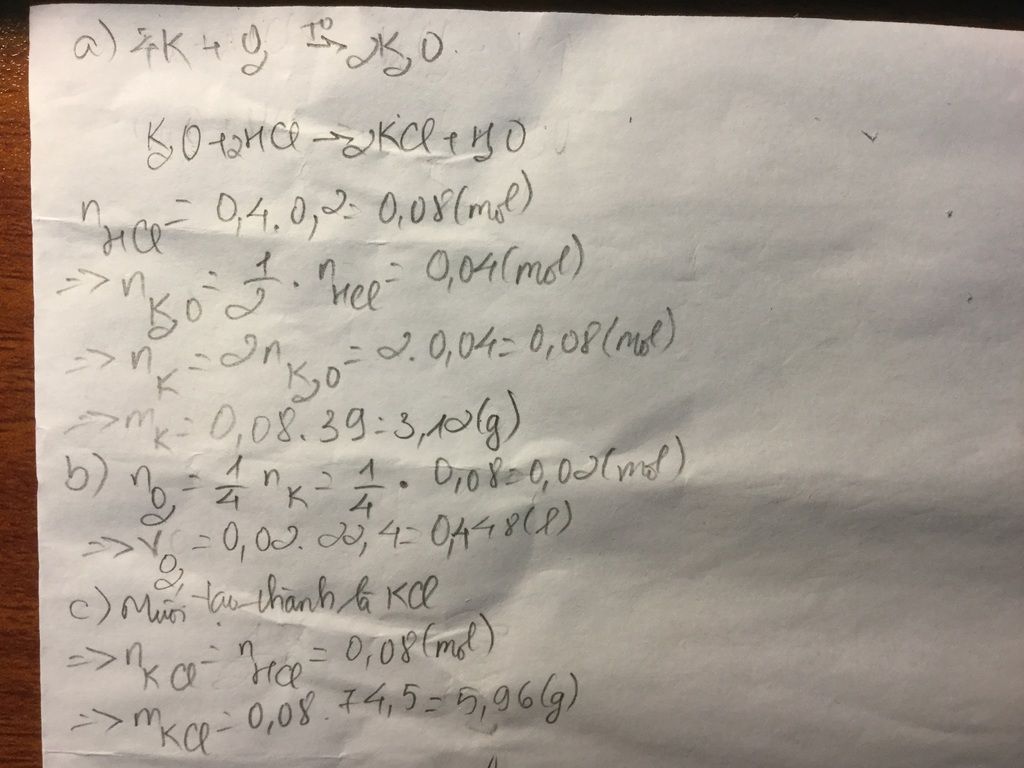 a) 4K + O₂ →(T⁰) 2K₂O
K₂O + 2HCl → 2KCl + H₂O
n_HCl = 0,4 . 0,2 = 0,08 (mol)
=> n_K₂O = 1/2 . n_HCl = 0,04 (mol)
=> n_K = 2n_K₂O = 2 . 0,04 = 0,08 (mol)
=> m_K = 0,08 . 39 = 3,12 (g)
b) n_O₂ = 1/4 n_K = 1/4 . 0,08 = 0,02 (mol)
=> V_O₂ = 0,02 . 22,4 = 0,448 (l)
c) Muối tạo thành là KCl
=> n_KCl = n_HCl = 0,08 (mol)
=> m_KCl = 0,08 . 74,5 = 5,96 (g)